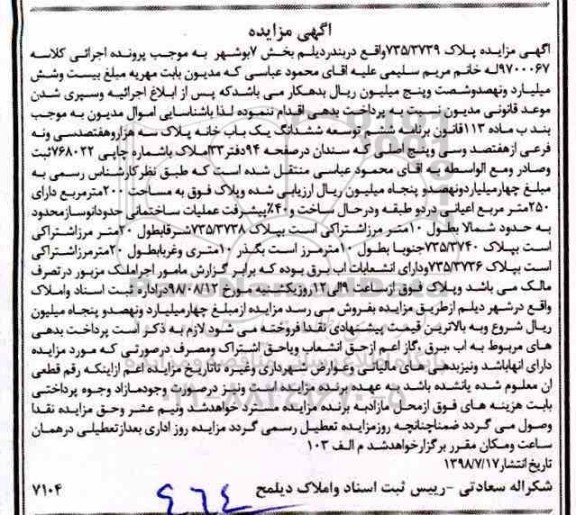 آگهی مزایده
آگهی مزایده پلاک ۷۳۵/۳۷۳۹واقع دربندردیلم بخش ۷بوشهر به موجب پرونده اجرائی کلاسه
۹۷۰۰۰۶۷له خانم مریم سلیمی علیه اقای محمود عباسی که مدیون بابت مهریه مبلغ بیست وشش
میلیارد ونهصدوشصت وپنج میلیون ریال بدهکار می باشدکه پس از ابلاغ اجرائیه وسپری شدن
موعد قانونی مدیون نسبت به پرداخت بدهی اقدام ننموده لذا باشناسایی اموال مدیون به موجب
بند ب ماده ۱۱۳قانون برنامه ششم توسعه ششدانگ یک باب خانه پلاک سه هزاروهفتصدسی ونه
فرعی ازهفتصد وسی وپنج اصلی که سندان درصفحه ۹۴دفتر۳۳املاک باشماره چاپی ۷۶۸۰۲۲ثبت
وصادر ومع الواسطه به اقای محمود عباسی منتقل شده است که طبق نظرکارشناس رسمی به
مبلغ چهارمیلیاردونهصدو پنجاه میلیون ریال ارزیابی شده وپلاک فوق به مساحت ۲۰۰مترمربع دارای
۲۵۰متر مربع اعیانی دردو طبقه ودرحال ساخت و۴۰٪پیشرفت عملیات ساختمانی حدودانوسازمحدود
به حدود شمالا بطول ۱۰متر مرزاشتراکی است بپلاک ۷۳۵/۳۷۳۸شرقابطول ۲۰متر مرزاشتراکی
است بپلاک ۷۳۵/۳۷۴۰جنوبا بطول ۱۰مترمرز است بگذر ۱۰متری وغربابطول ۲۰مترمرزاشتراکی
است بپلاک ۷۳۵/۳۷۳۶ودارای انشعابات اب برق بوده که برابر گزارش مامور اجراملک مزبور درتصرف
مالک می باشد وپلاک فوق ازساعت ۹الی۱۲روزیکشنبه مورخ ۹۸/۰۸/۱۲دراداره ثبت اسناد واملاک
واقع درشهر دیلم ازطریق مزایده بفروش می رسد مزایده ازمبلغ چهارمیلیارد ونهصدو پنجاه میلیون
ریال شروع وبه بالاترین قیمت پیشنهادی نقدا فروخته می شود لازم به ذکر است پرداخت بدهی
های مربوط به اب برق ،گاز اعم ازحق انشعاب ویاحق اشتراک ومصرف درصورتی که مورد مزایده
دارای انهاباشد ونیزبدهی های مالیاتی وعوارض شهرداری وغیره تاتاریخ مزایده اعم ازاینکه رقم قطعی
ان معلوم شده یانشده باشد به عهده برنده مزایده است ونیز درصورت وجودمازاد وجوه پرداختی
بابت هزینه های فوق ازمحل مازادبه برنده مزایده مسترد خواهدشد ونیم عشر وحق مزایده نقدا
وصول می گردد ضمناچنانچه روزمزایده تعطیل رسمی گردد مزایده روز اداری بعدازتعطیلی درهمان
ساعت ومکان مقرر برگزارخواهدشد م الف ۱۰۳
تاریخ انتشار۱۳۹۸/۷/۱۷
شکراله سعادتی -رییس ثبت اسناد واملاک دیلمح
۷۱۰۴